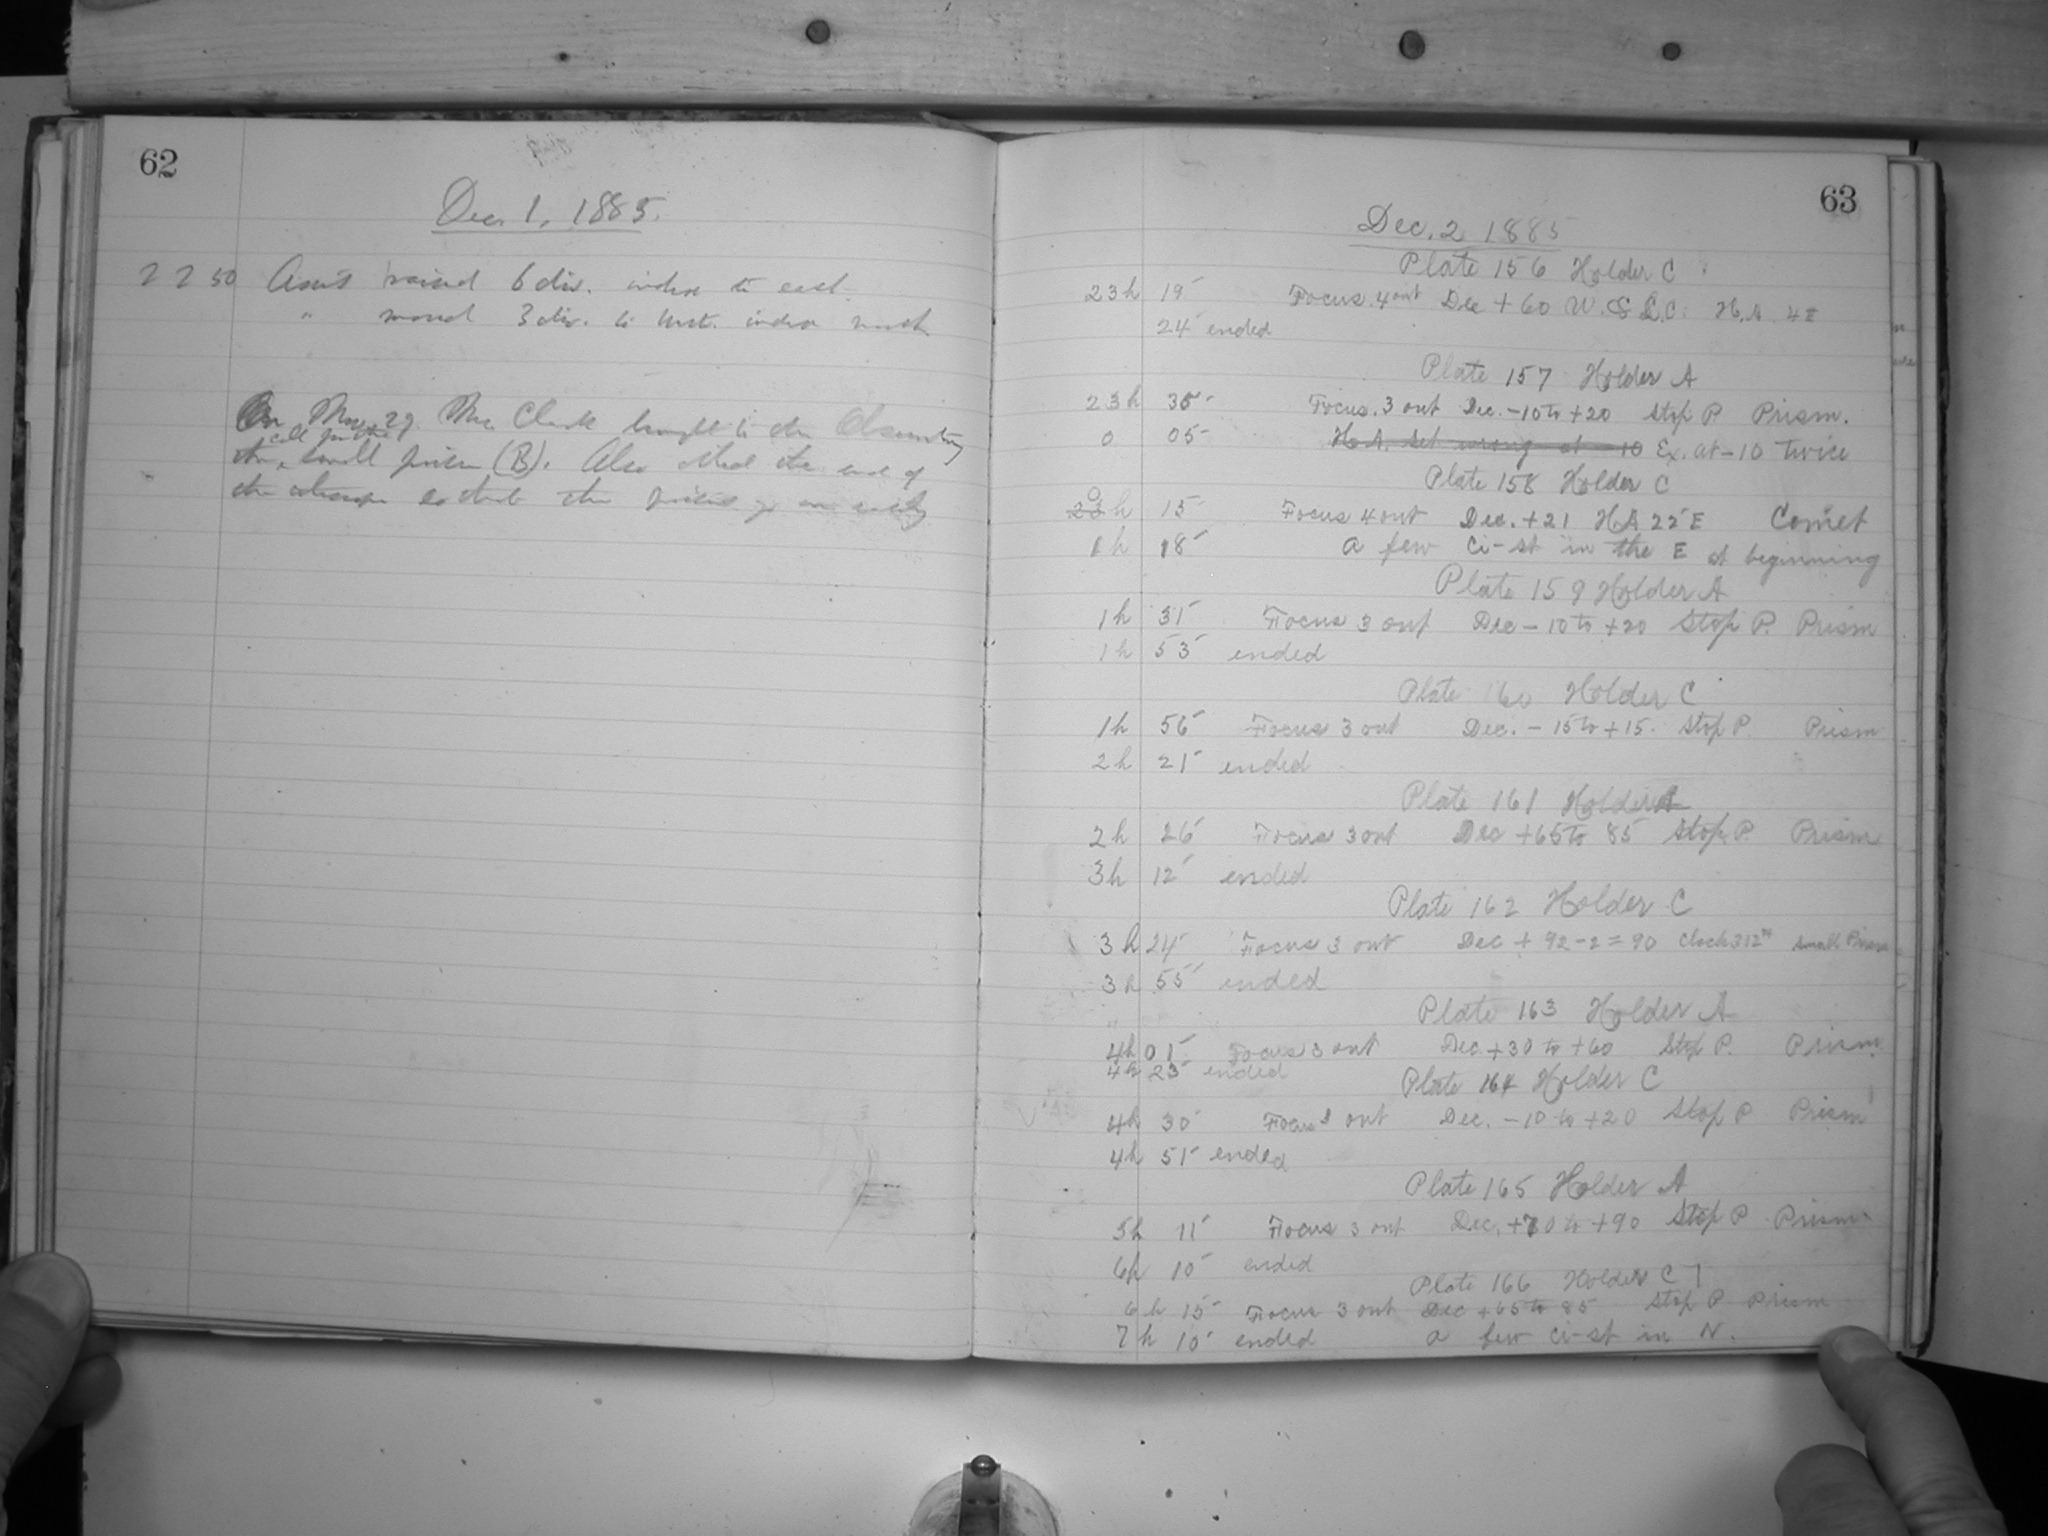 62
Dec. 1, 1885.
2 2 50 raised 6 div. index to east.
" moved 3 div. to west. index north
On 29. Mr. Clark brought to the Observatory
cell for the
the small prism (B). Also the end of
the so that the on easily
63
Dec. 2 1885
Plate 156 Holder C
23h 19 Focus. 4 out Dec + 60 W. S L.C. H.A. 4 E
24 ended
Plate 157 Holder A
23h 35 Focus. 3 out Dec. -10 to +20 Stop P Prism.
0 05 H.A. set wrong at -10 Ex. at -10 twice
Plate 158 Holder C
0
23h 15 Focus 4 out Dec. +21 HA 22 E Comet
1h 18 a few Ci-st in the E at beginning
Plate 159 Holder A
1h 31 Focus 3 out Dec - 10 to +20 Stop P. Prism
1h 53 ended
Plate 160 Holder C
1h 56 Focus 3 out Dec. - 15 to +15. Stop P. Prism
2h 21 ended
Plate 161 Holder A
2h 26 Focus 3 out Dec +65 to 85 Stop P. Prism
3h 12 ended
Plate 162 Holder C
3h 24 Focus 3 out Dec + 92-2=90 Clock 312 small Prism
3h 55 ended
Plate 163 Holder A
4h 01 Focus 3 out Dec. +30 to +60 Stop P. Prism
4h 25 ended
Plate 164 Holder C
4h 30 Focus 3 out Dec. -10 to +20 Stop P Prism
4h 51 ended
Plate 165 Holder A
5h 11 Focus 3 out Dec. +70 to +90 Stop P Prism
6h 10 ended
Plate 166 Holder C
6h 15 Focus 3 out Dec +65 to 85 Stop P Prism
7h 10 ended a few ci-st in N.